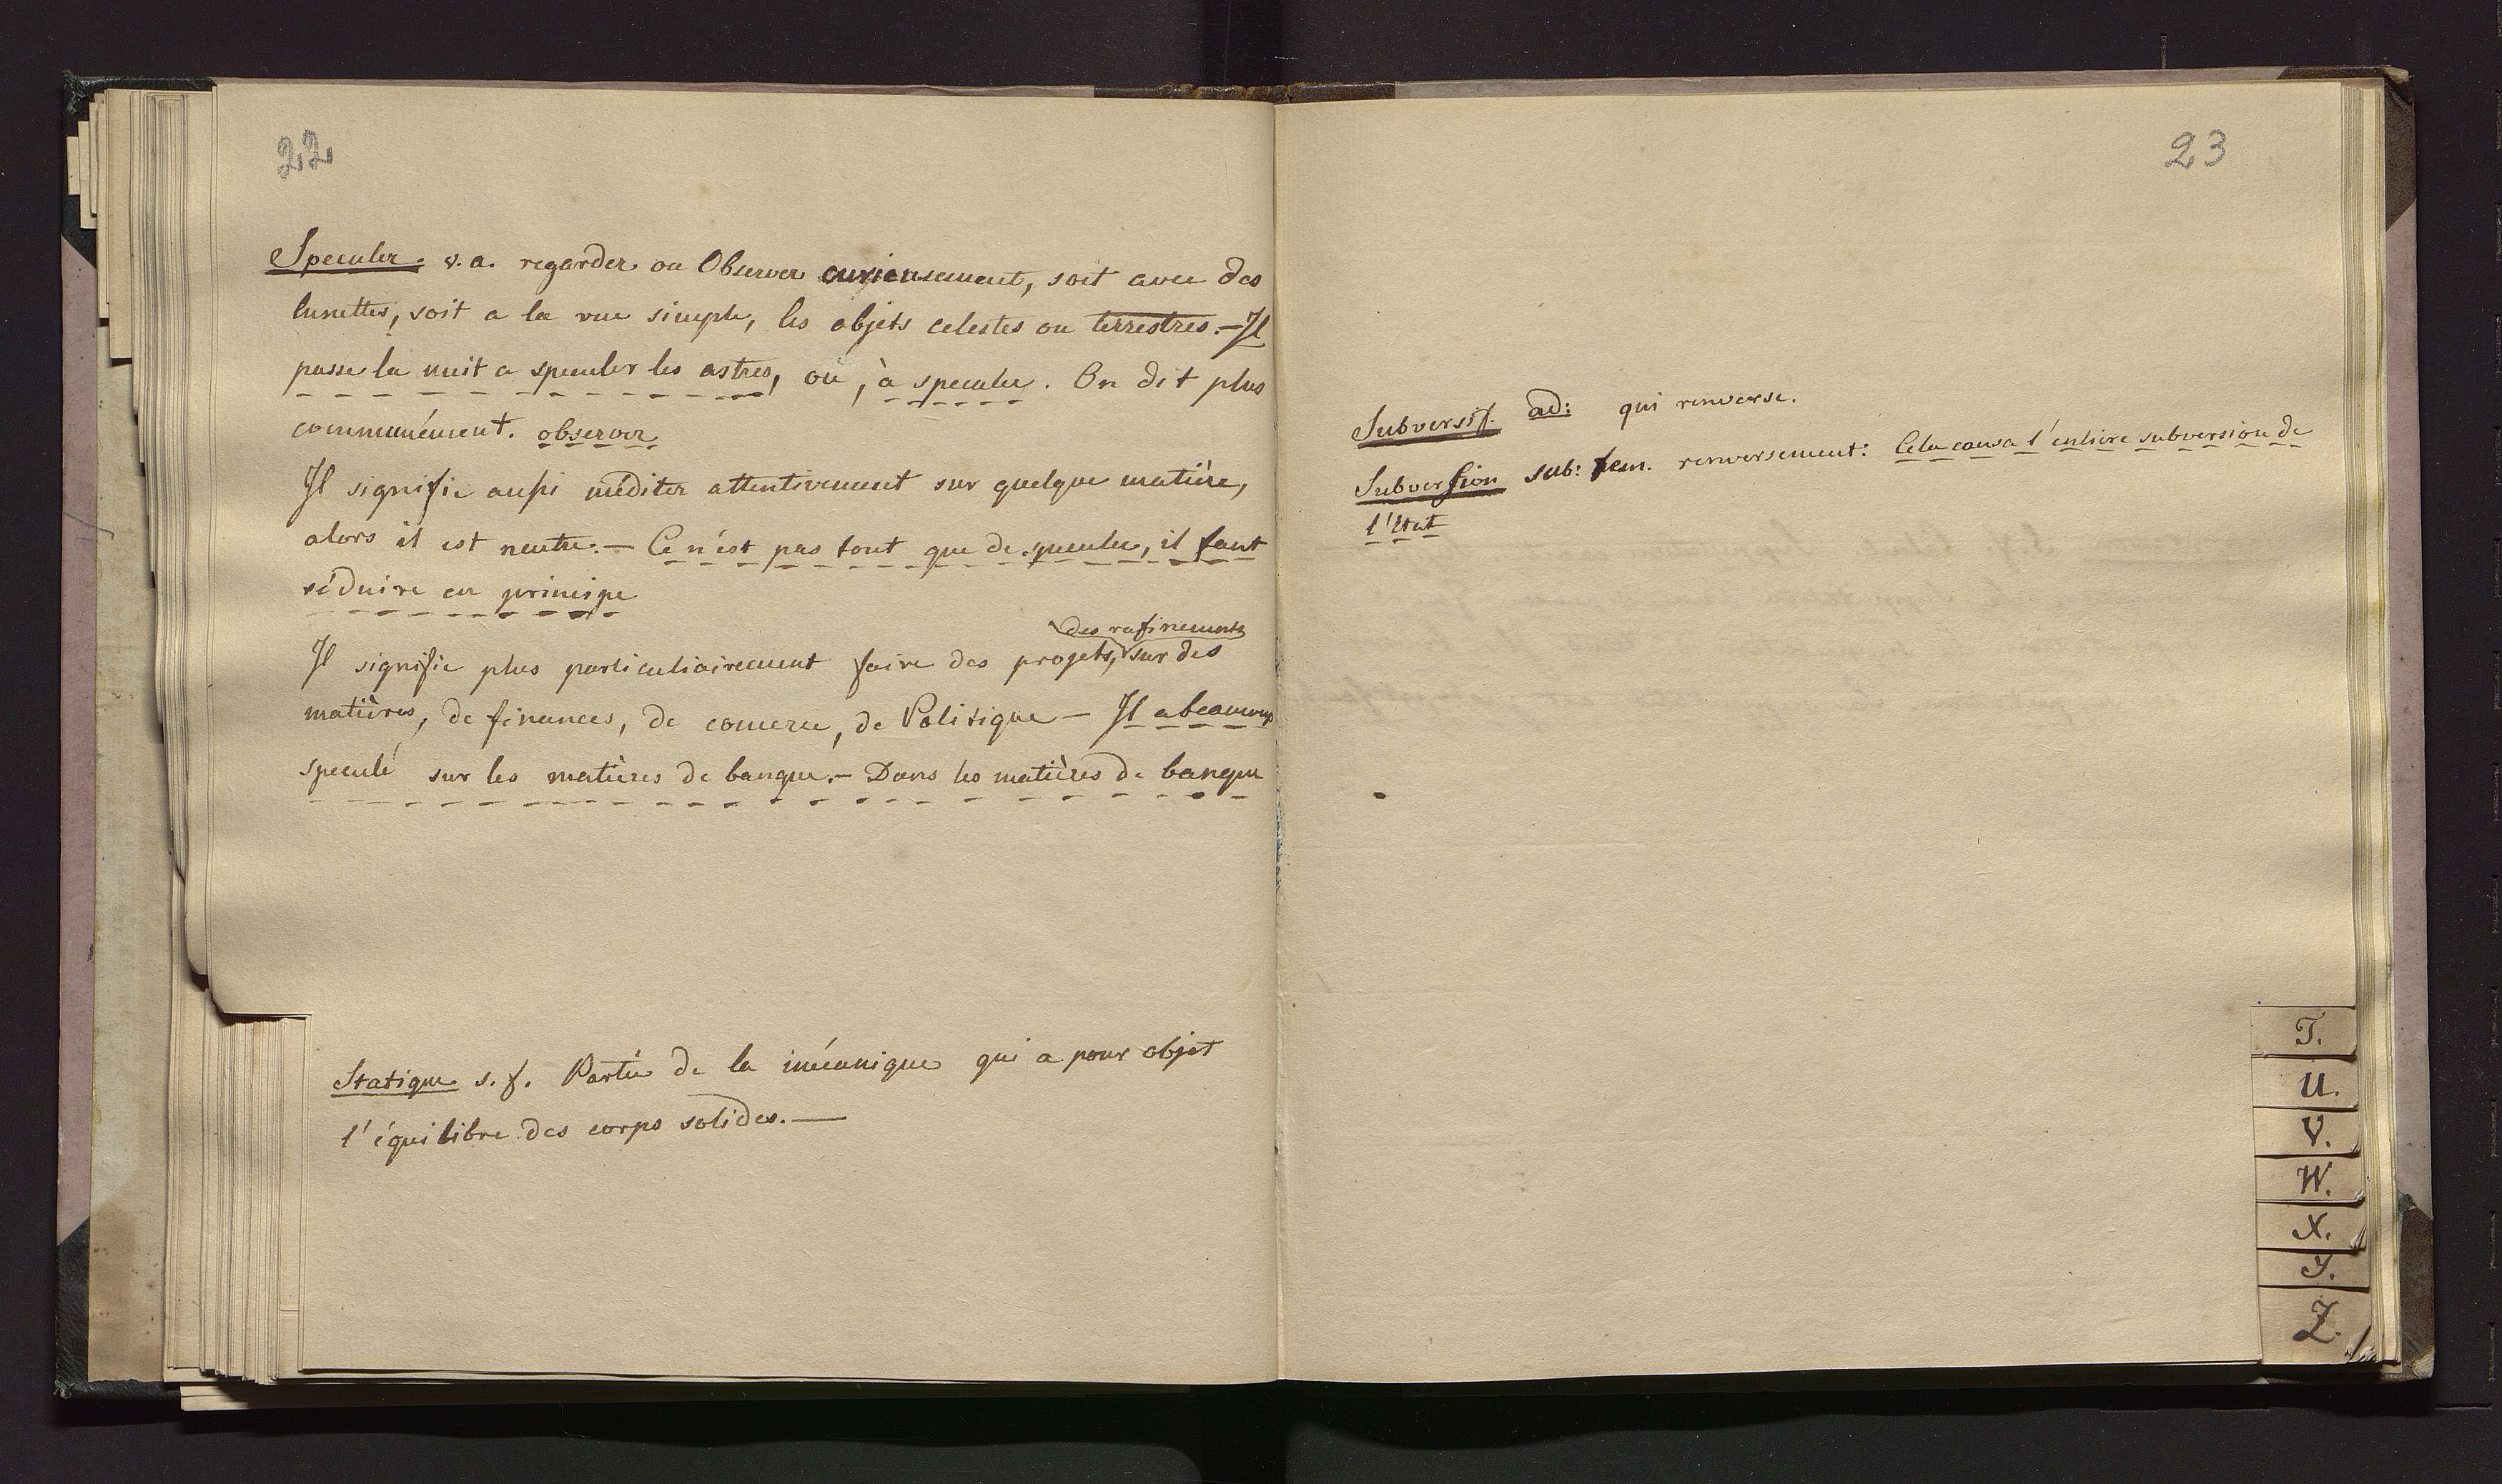 22
Speculer. v. a. regarder ou Observer curieusement, soit avec des
lunettes, soit a la vue simple, les objets celestes ou terrestres. — Il
passe la nuit a speculer les astres, ou, à speculer. On dit plus
communément. observer.
Il signifie aussi méditer attentivement sur quelque matière,
alors il est neutre. — Ce n'est pas tout que de speculer, il faut
réduire en principe
des rafinements
Il signifie plus particuliairement faire des projets, sur des
matières, de finances, de comerce, de Politique — Il a beaucoup
speculé sur les matières de banque. — Dans les matières de banque
Statique s. f. Partie de la mécanique qui a pour objet
l'équilibre des corps solides. —
23
Subversif. ad: qui renverse.
Subversion sub: fem. renversement: Cela causa l'entiere subversion de
l'Etat
T.
U.
V.
W.
X.
Y.
Z.